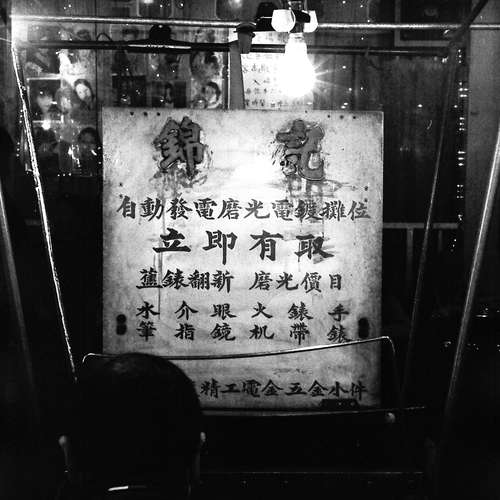 錦記
自動發電磨光電鍍攤位
立即有取
舊錶翻新 磨光價目
水筆 介指 眼鏡 火机 錶帶 手錶
精工電金五金小件